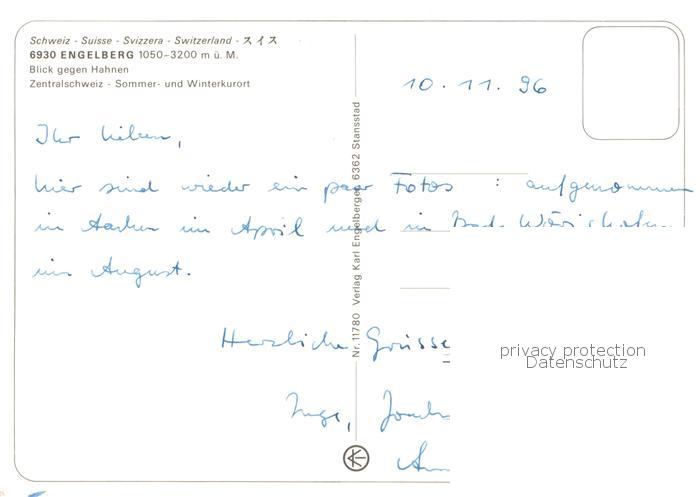 Schweiz - Suisse - Svizzera - Switzerland - スイス
6930 ENGELBERG 1050-3200 m ü. M.
Blick gegen Hahnen
Zentralschweiz - Sommer- und Winterkurort
10.11.96
Ihr Lieben,
hier sind wieder ein paar Fotos : aufgenommen
in Aachen im April und in Bad Wörishofen
im August.
Herzliche Grüsse
Inge,
Nr. 11780 Verlag Karl Engelberger, 6362 Stansstad
privacy protection
Datenschutz